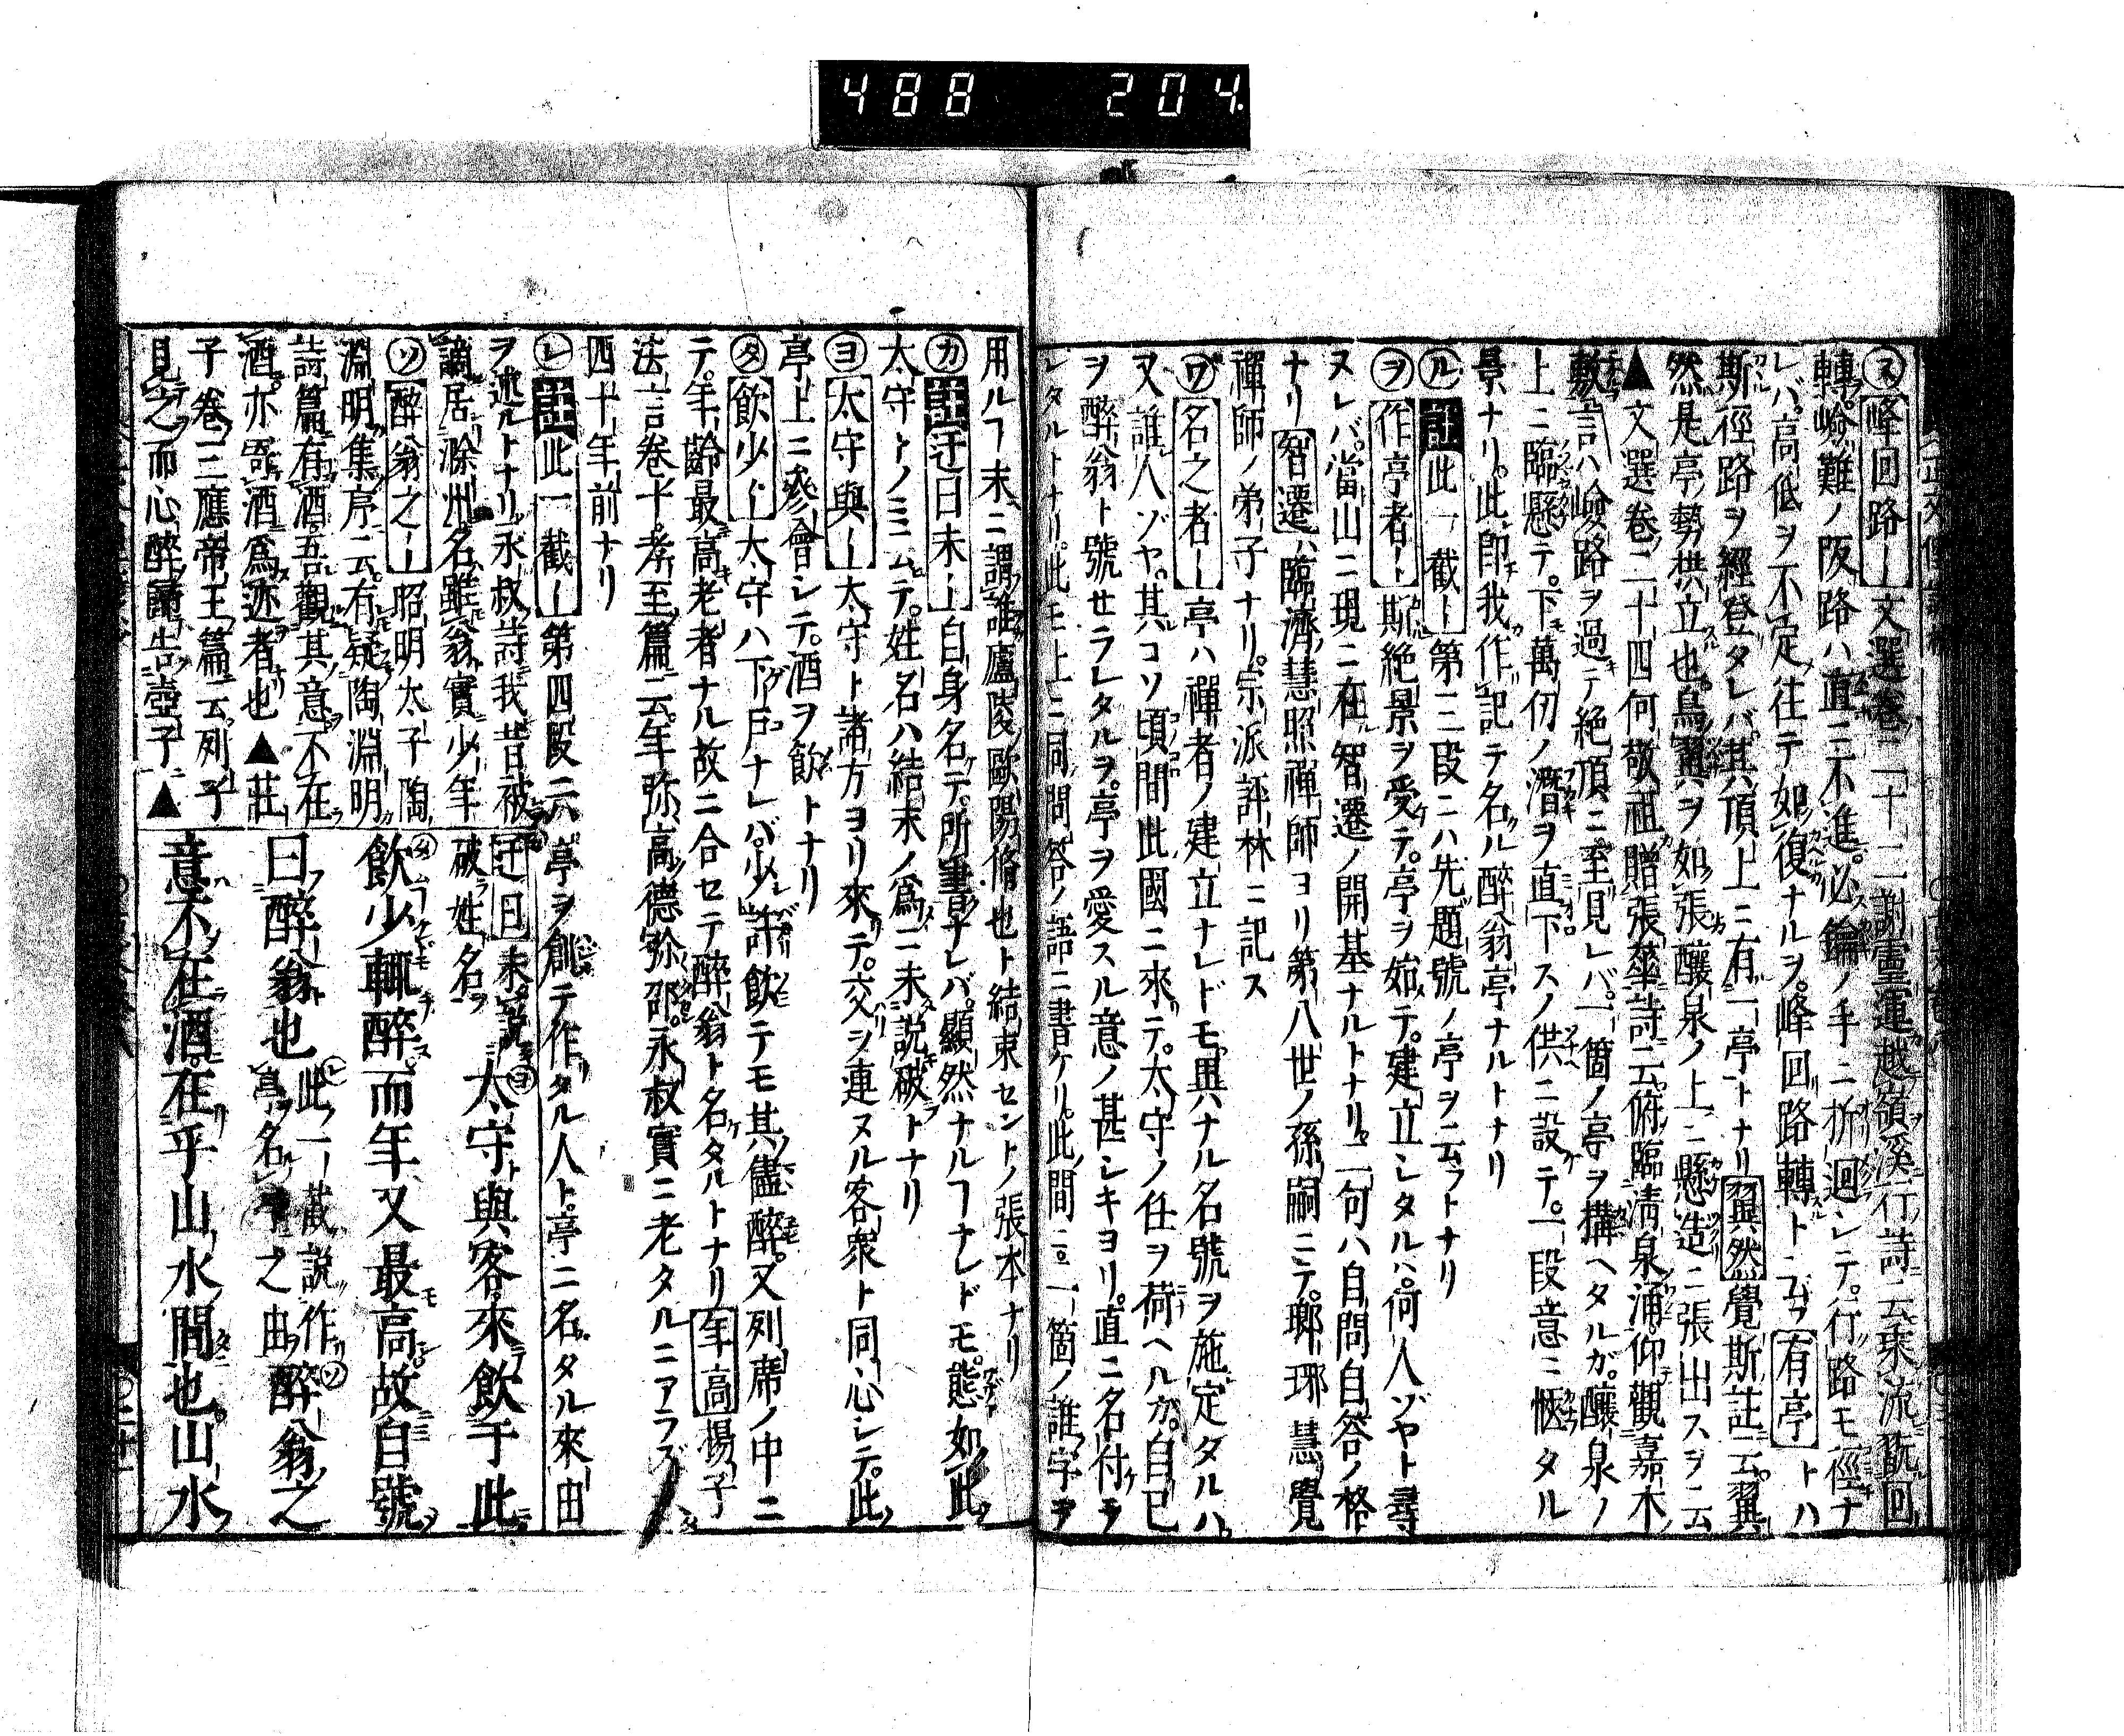 488 204.
㋦峰回路〡文選卷二十二謝靈運越嶺溪行詩云乘流翫回
轉嶮難ノ阪路ハ直ニ不進必鑰ノ手ニ折廻シテ行路モ徑ナ
レバ高低ヲ不定往テ如復ナルヲ峰回路轉ト云フ有亭トハ
斯徑路ヲ經登タレバ其頂上ニ有一亭トナリ翼然覺斯註云翼
然是亭ノ勢拱立也鳥翼ヲ如張釀泉ノ上ニ懸造ニ張出スヲ云
▲文選卷二十四何敬祖贈張華詩云俯臨清泉涌仰觀嘉木
敷言ハ嶮路ヲ過テ絶頂ニ至見レバ一箇ノ亭ヲ構ヘタルガ釀泉ノ
上ニ臨懸テ下萬仞ノ潛ヲ直下スノ供ニ設テ一段意ニ愜タル
景ナリ此即我作記テ名ル醉翁亭ナルトナリ
㋸註此一截〡第三段ニハ先題號ノ亭ヲ云フトナリ
㋾作亭者〡斯絶景ヲ愛テ亭ヲ始テ建立シタルハ何人ゾヤト尋
ヌレバ當山ニ現ニ在智遷ノ開基ナルトナリ二句ハ自問自答ノ格
ナリ智遷ハ臨濟慧照禪師ヨリ第八世ノ孫嗣ニテ瑯琊慧覺
禪師ノ弟子ナリ宗派評林ニ記ス
㋻名之者〡亭ハ禪者ノ建立ナレドモ異ナル名號ヲ施定タルハ
又誰人ゾヤ其コソ頃間此國ニ來テ太守ノ任ヲ荷ヘルガ自已
ヲ醉翁ト號セラレタルヲ亭ヲ愛スル意ノ甚シキヨリ直ニ名付ラ
レタルトナリ此モ上ニ同問答ノ語ニ書ケリ此ノ間ニ一箇ノ誰字ヲ
用ルヿ末ニ謂誰廬陵歐陽脩也ト結束セントノ張本ナリ
㋕註迂曰未〡自身名テ所書ナレバ顯然ナルヿナレドモ態如此
太守トノミニテ姓名ハ結末ノ爲ニ未説破トナリ
㋵太守與〡太守ト諸方ヨリ來テ交ヲ連ヌル客衆ト同心シテ此
亭上ニ參會シテ酒ヲ飮トナリ
㋟飲少〡太守ハ下戸ナレバ少許飲テモ其儘醉又列席ノ中ニ
テ年齡最高老者ナル故ニ合セテ醉翁ト名タルトナリ年高揚子
法言卷十孝至篇云年弥高德弥邵永叔實ニ老タルニアラズ
四十年前ナリ
㋹註此一截〡第四段ニハ亭ヲ創テ作タル人ト亭ニ名タル來由
ヲ述ルトナリ永叔詩我昔被
謫居滁州名雖翁實少年
㋞醉翁之〡昭明太子陶
淵明集序云有疑陶淵明
詩篇有酒吾觀其意不在
酒亦寄酒爲迹者也▲莊
子卷三應帝王篇云列子
見之而心醉歸告壺子▲
迂曰未説破姓名 太守與客來飲于此
飲少輒醉而年又最高故自號
曰醉翁也此一截説作亭名亭之由醉翁之
意不在酒在乎山水間也山水